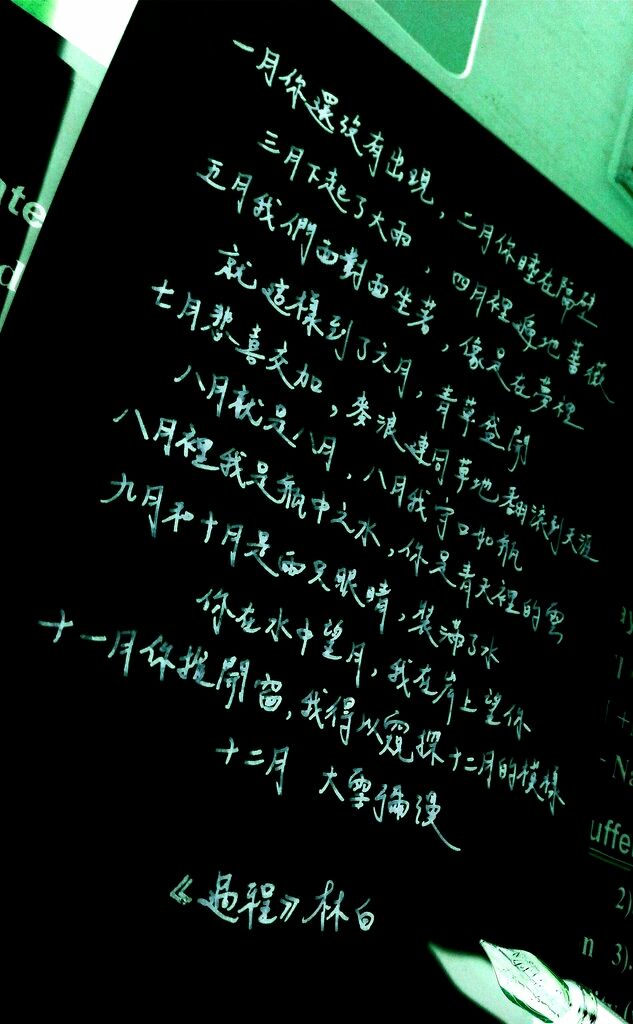 一月你還沒有出現，二月你睡在隔壁
三月下起了大雨，四月裡遍地薔薇
五月我們面對面坐著，像是在夢裡
就這樣到了六月，青草盛開
七月悲喜交加，麥浪連同草地翻滾到天涯
八月就是八月，八月我守口如瓶
八月裡我是瓶中之水，你是青天裡的雲
九月和十月是兩只眼睛，裝滿了水
你在水中望月，我在岸上望你
十一月你推開窗，我得以窺探十二月的模樣
十二月 大雪彌漫
《過程》林白
uffe
2)
n 3).